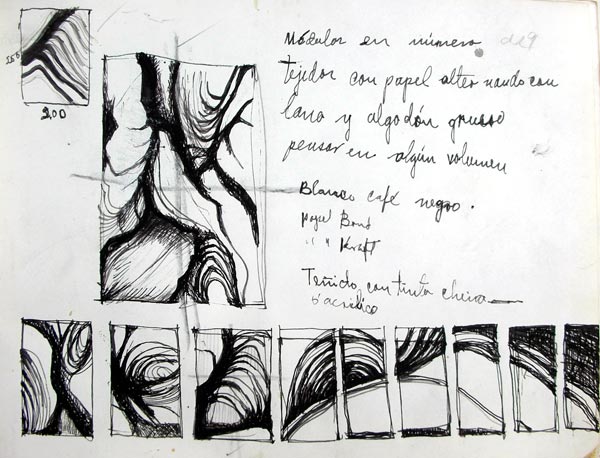 200
Módulos en número de 9
tejidos con papel alternando con
lana y algodón grueso
pensar en algún volumen
Blanco café negro.
papel Bond
" " Kraft
Teñido con tinta china